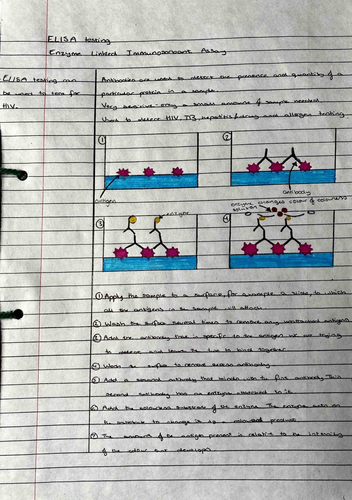 ELISA testing
Enzyme Linked Immunosorbant Assay
ELISA testing can
be used to test for
HIV.
Antibodies are used to detect the presence and quantity of a
particular protein in a sample.
Very sensitive - only a small amount of sample needed
Used to detect HIV, TB, hepatitis, drug and allergen testing
①
②
antigen
antibody
③
enzyme
④
enzyme changes colour of colourless
solution
① Apply the sample to a surface, for example a slide, to which
all the antigens in the sample will attach
② Wash the surface several times to remove any unattached antigens
③ Add the antibody that is specific to the antigen we are trying
to detect and leave the two to bind together
④ Wash the surface to remove excess antibody
⑤ Add a second antibody that binds with the first antibody. This
second antibody has an enzyme attached to it
⑥ Add the colourless substrate of the enzyme. The enzyme acts on
the substrate to change it to a coloured product
⑦ The amount of the antigen present is relative to the intensity
of the colour that develops.